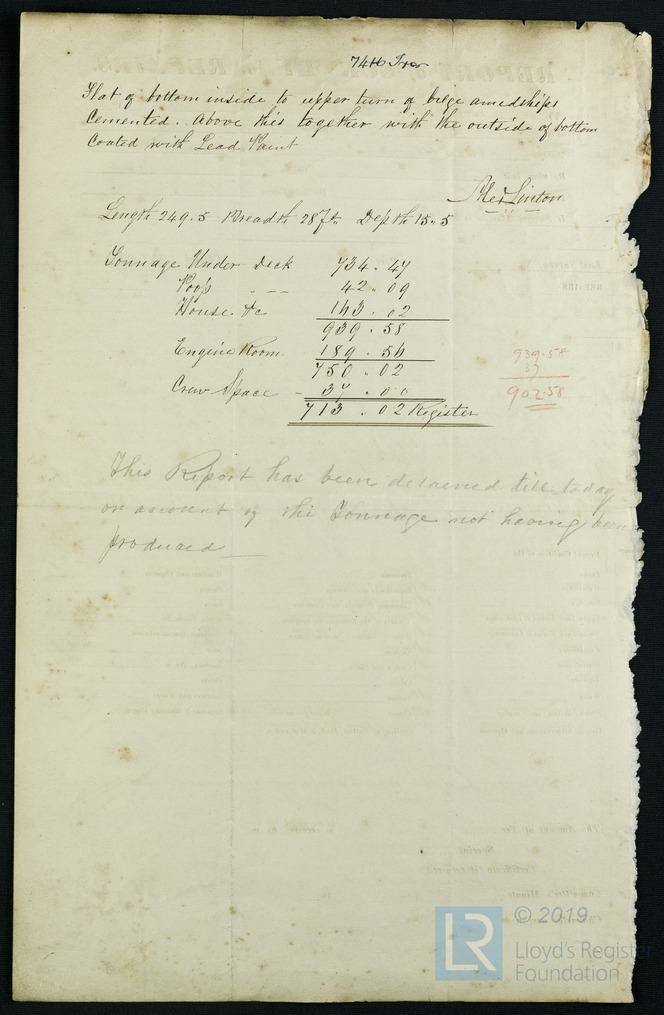 7416 Iron
Flat of bottom inside to upper turn of bilge amidships
Cemented. Above this together with the outside of bottom
Coated with Lead Paint
Alex Linton
Length 249.5 Breadth 28 7/10 Depth 15.5
Tonnage Under Deck 734.47
Poop 42.09
House &c 163.02
939.58
Engine Room 189.56
750.02
Crew Space - 37.00
713.02 Register
939.58
37
902.58
This Report has been detained till today
on account of the Tonnage not having been
produced
© 2019
LR
Lloyd's Register
Foundation